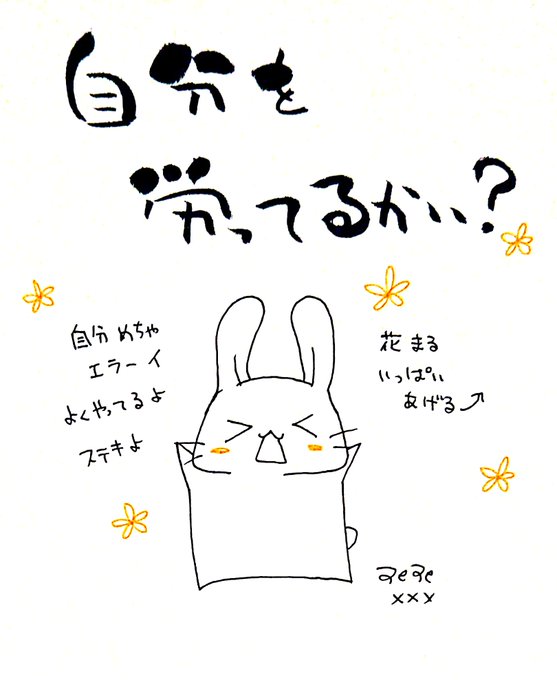 自分を
労ってるかい?
自分 めちゃ
エラーイ
よくやってるよ
ステキよ
花まる
いっぱい
あげる
xxx